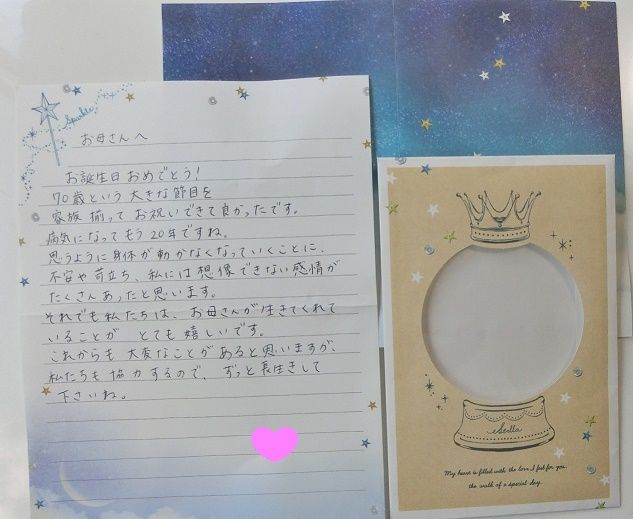 Sparkle
お母さんへ
お誕生日おめでとう!
70歳という大きな節目を
家族揃ってお祝いできて良かったです。
病気になってもう20年ですね。
思うように身体が動かなくなっていくことに、
不安や苛立ち、私には想像できない感情が
たくさんあったと思います。
それでも私たちは、お母さんが生きてくれて
いることが とても嬉しいです。
これからも大変なことがあると思いますが、
私たちも協力するので、ずっと長生きして
下さいね。
Stella
My heart is filled with the love I feel for you.
the wish of a special day.